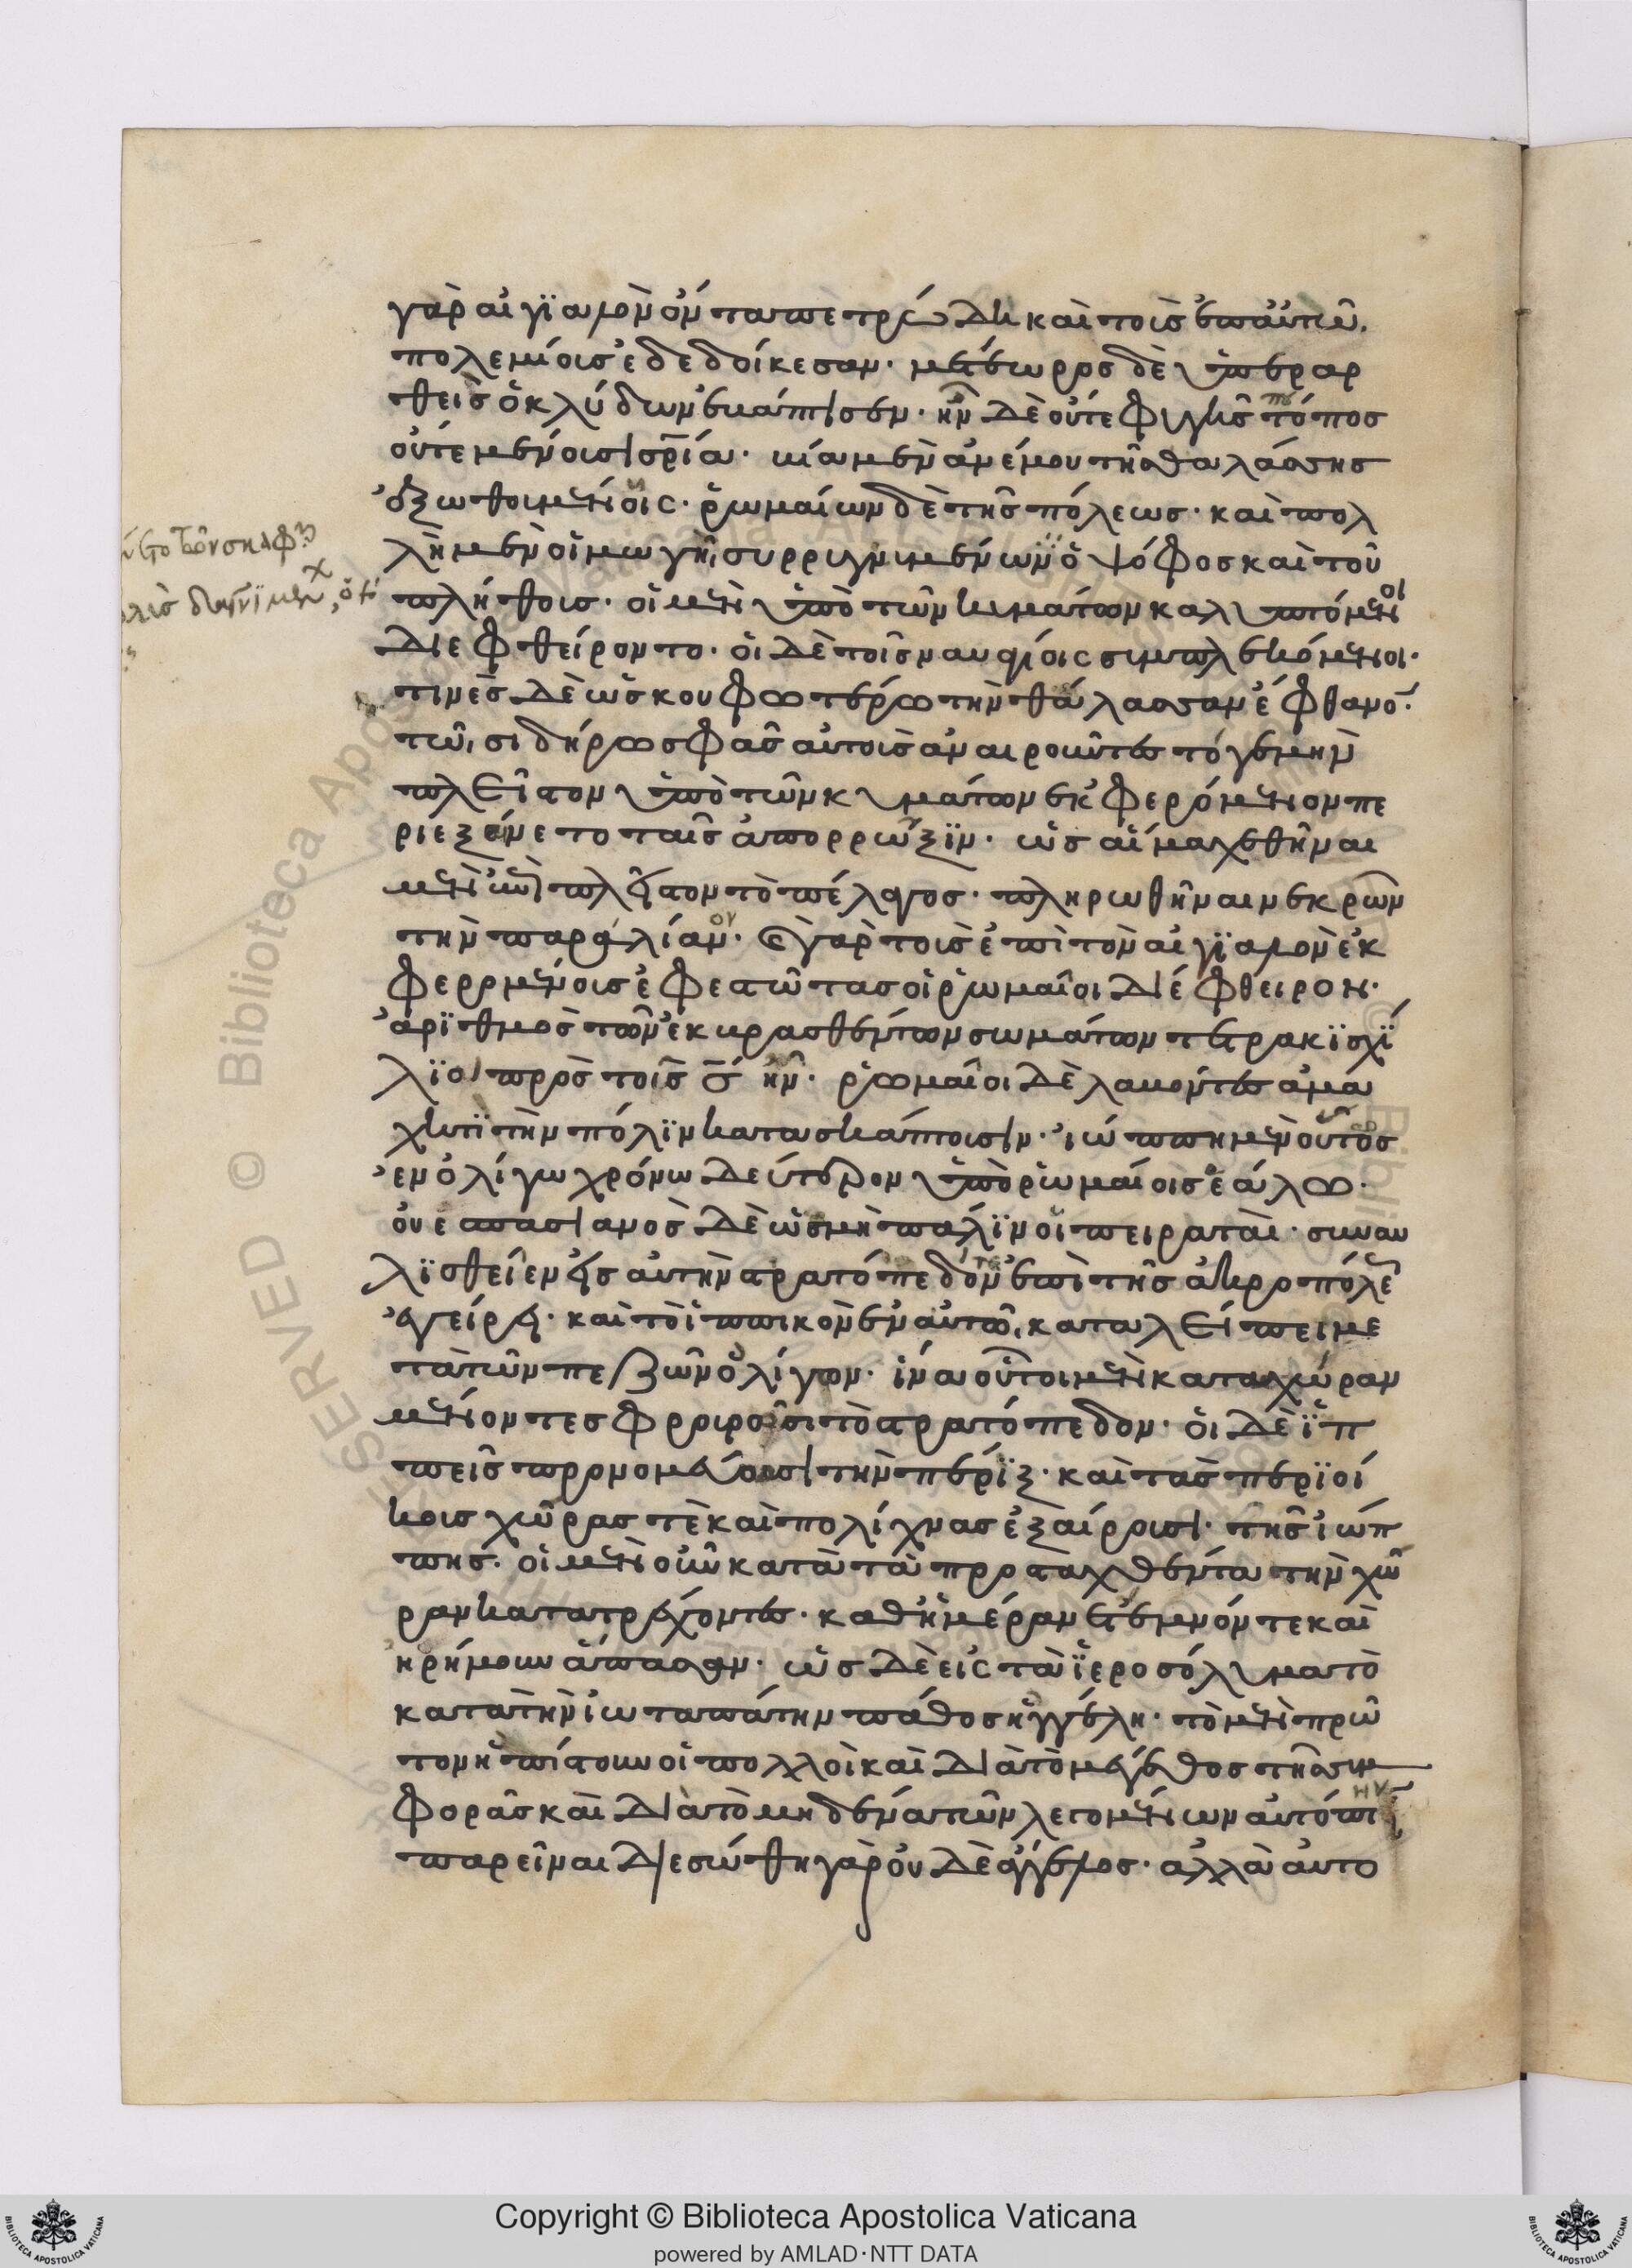 γὰρ αἰγϊαλὸν ὄντα πετρώδη καὶ τοῖς ἐπ αὐτῶ,
πολεμίοις ἐδεδοίκεσαν· μετέωρος δὲ ὑπεραρ
θεὶς ὁ κλύδων ἐβάπτισεν· ἦν δὲ οὔτε φυγῆς τόπος
οὔτε μένουσι σρία· βία μὲν ἀνέμου τῆς θαλάσσης
ἐξωθουμένοις· ῥωμαίων δὲ τῆς πόλεως· καὶ πολ
λὴ μὲν οἰμωγὴ, συρριγνυμένων ὁ ψόφος καὶ τοῦ
πλήθους· οἱ μὲν ὑπὸ τῶν κυμάτων καλυπτόμενοι
διεφθείροντο· οἱ δὲ τοῖς ναυαγίοις συμπλεκόμενοι·
τινὲς δὲ ὡς κουφωτέρω τὴν θάλασσαν ἔφθανον·
τῶ, σιδήρω σφᾶς αὐτοὺς ἀναιροῦντες τό γε μὴν
πλεῖστον ὑπὸ τῶν κυμάτων ἐκφερόμενον πε
ριεξαίνετο ταῖς ἀπορρῶξϊν· ὡς αἱμαχθῆναι
μὲν ἐπὶ πλεῖστον τὸ πέλαγος· πληρωθῆναι νεκρῶν
τὴν παραλίαν· καὶ γὰρ τοὺς ἐπὶ τὸν αἰγϊαλὸν ἐκ
φερομένους ἐφεστῶτας οἱ ῥωμαῖοι διέφθειρον·
ἀρϊθμὸς τῶν ἐκβρασθέντων σωμάτων τετρακϊσχί
λϊοι πρὸς τοῖς σ ἦν· ῥωμαῖοι δὲ λαβόντες ἀμα
χητὶ τὴν πόλϊν κατασκάπτουσιν· ἰώππη μὲν οὕτως
ἐν ὀλίγω χρόνω δεύτερον ὑπὸ ῥωμαίοις ἑάλω·
οὐεσπασιανὸς δὲ ὡς μὴ πάλϊν οἱ πειραταὶ· συναυ
λϊσθεῖεν εἰς αὐτὴν στρατόπεδον ἐπὶ τῆς ἀκροπόλε
ἐγείρει· καὶ τὸ ἱππικὸν ἐν αὐτῶ, καταλείπει με
τὰ τῶν πεζῶν ὀλίγων· ἵνα οὗτοι μὲν κατὰ χώραν
μένοντες φρουρῶσι τὸ στρατόπεδον· οἱ δὲ ἱπ
πεῖς προνομεύουσι τὴν πέρϊξ· καὶ τὰς περϊοί
κους χώρας τὲ καὶ πολίχνας ἐξαίρουσι· τῆς ἰώπ
πης· οἱ μὲν οὖν κατὰ τὰ προσταχθέντα τὴν χώ
ραν κατατρέχοντες· καθ ἡμέραν ἔτεμνόν τε καὶ
ἠρήμουν ἅπασαν· ὡς δὲ εἰς τὰ ἱεροσόλυμα τὸ
κατὰ τὴν ἰωταπάτην πάθος ἠγγέλη· τὸ μὲν πρῶ
τον ἠπίστουν οἱ πολλοὶ καὶ διὰ τὸ μέγεθος τῆς συμ
φορᾶς καὶ διὰ τὸ μηδένα τῶν λεγομένων αὐτόπτην
παρεῖναι διεσώθη γὰρ οὐδὲ ἄγγελος· ἀλλὰ αὐτο